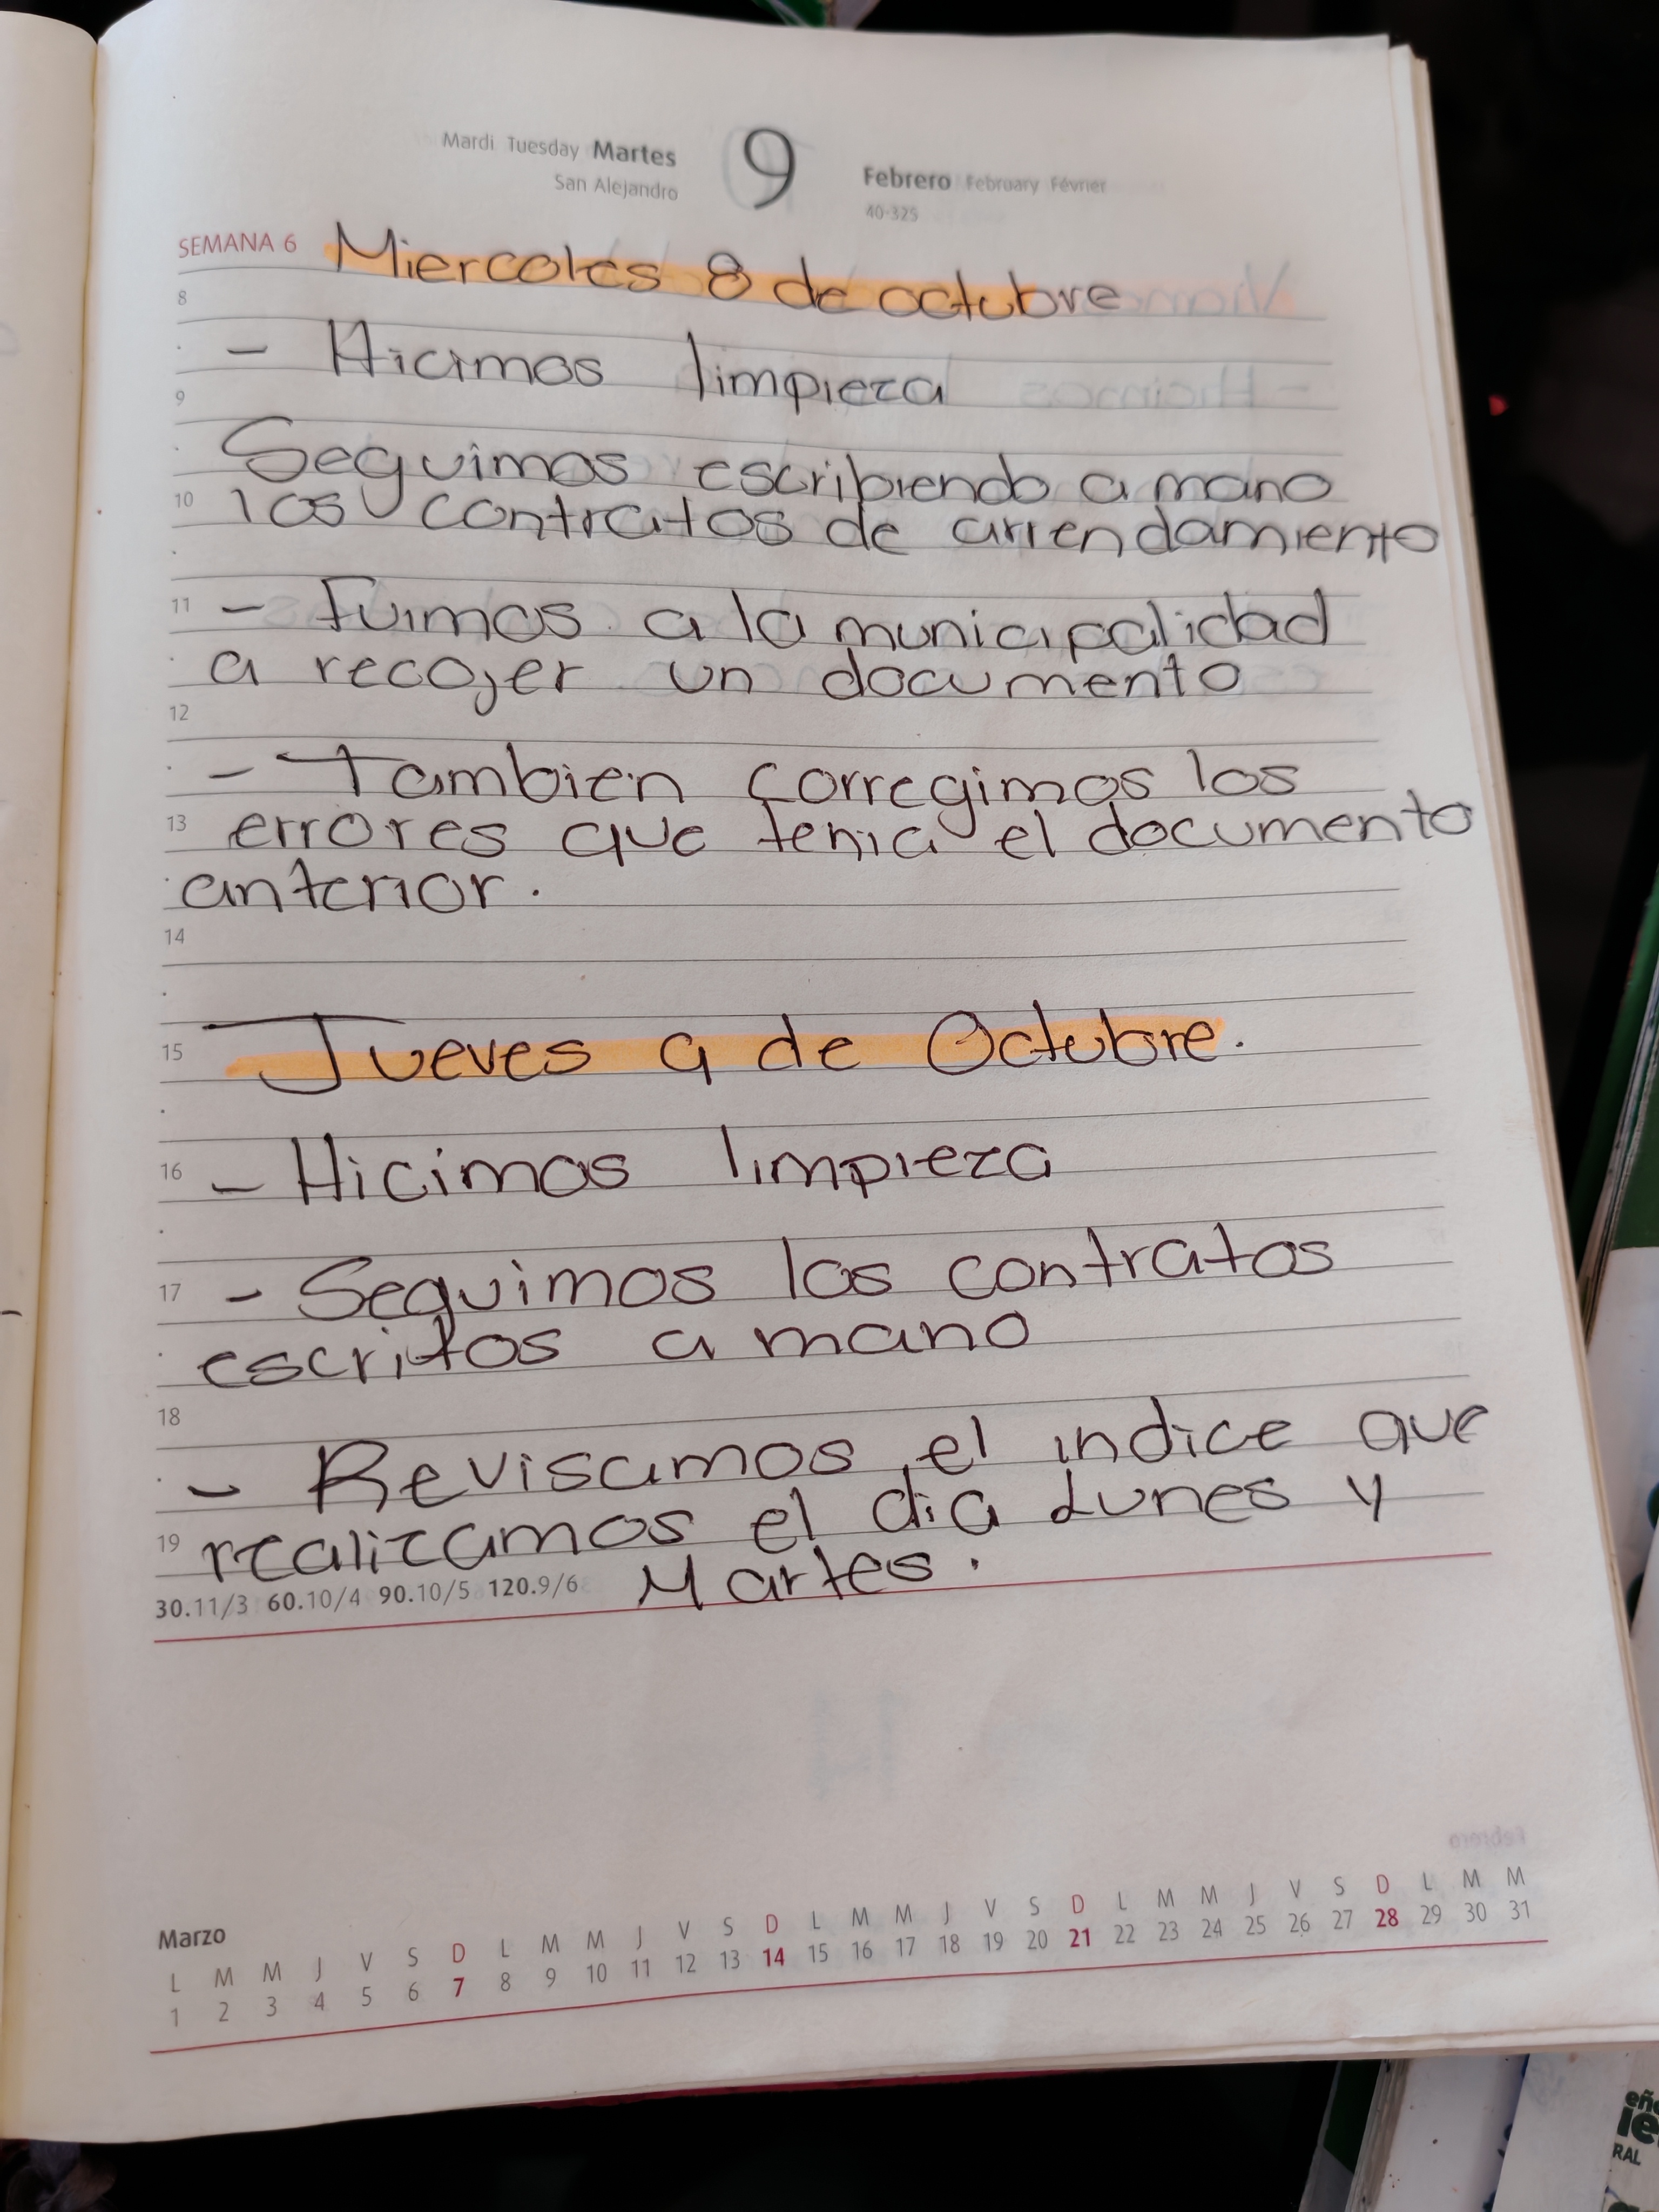 Mardi Tuesday Martes 9 Febrero February Février
San Alejandro 40-325
SEMANA 6 Miercoles 8 de octubre
8
- Hicimos limpieza
9
Seguimos escribiendo a mano
10 los contratos de arrendamiento
11 - Fuimos a la municipalidad
a recojer un documento
12
- Tambien corregimos los
13 errores que tenia el documento
anterior.
14
15 Jueves 9 de Octubre.
16 - Hicimos limpieza
17 - Seguimos los contratos
escritos a mano
18
- Revisamos el indice que
19 realizamos el dia Lunes y
30.11/3 60.10/4 90.10/5 120.9/6 Martes.
Febrero
Marzo
L M M J V S D L M M J V S D L M M J V S D L M M J V S D L M M
1 2 3 4 5 6 7 8 9 10 11 12 13 14 15 16 17 18 19 20 21 22 23 24 25 26 27 28 29 30 31
RAL